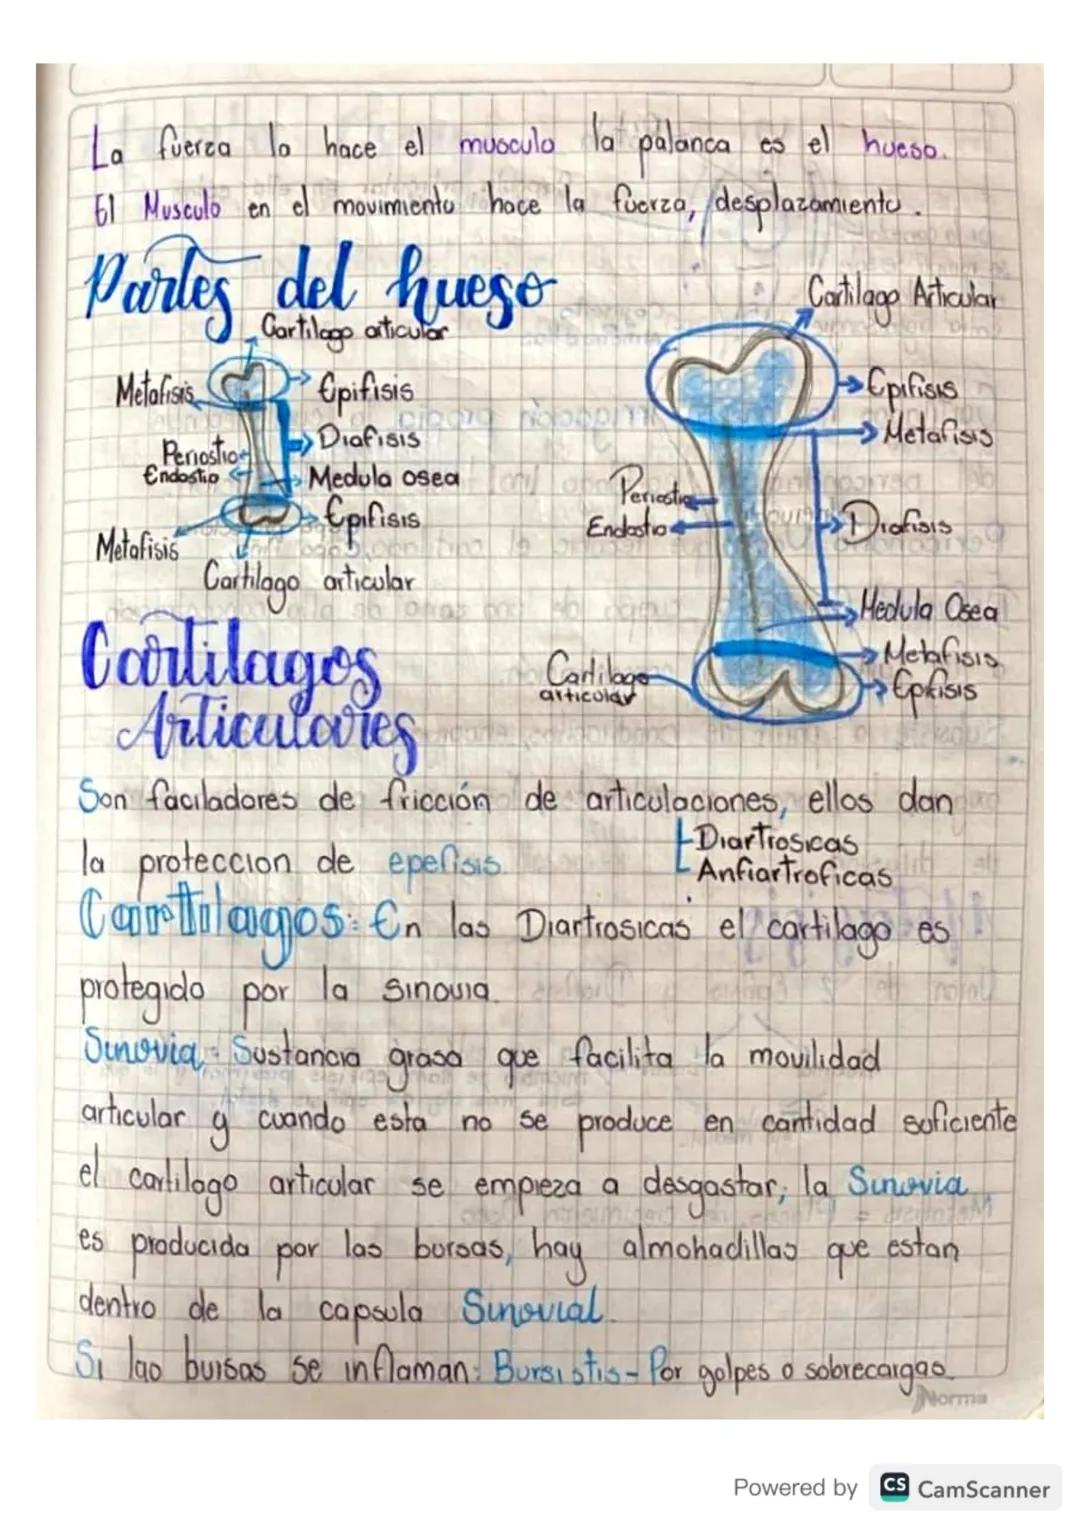 La fuerza la hace el musculo la palanca es el hueso.
El Musculo en el movimiento hace la fuerza, desplazamiento.
Partes del hueso
Cartilago articular
Metafisis
Epifisis
Diafisis
Periostio
Endostio
Medula osea
Epifisis
Metafisis
Cartilago articular
Cartilago Articular
Epifisis
Metafisis
Periostio
Endostio
Diafisis
Medula Osea
Metafisis
Epifisis
Cartilago
articular
Cartilagos
Articulares
Son faciladores de fricción de articulaciones, ellos dan
la proteccion de epefisis.
Diartrosicas
Anfiartroficas
Carttilagos: En las Diartrosicas el cartilago es
protegido por la sinovia.
Sinovia: Sustancia grasa que facilita la movilidad
articular y cuando esta no se produce en cantidad suficiente
el cartilago articular se empieza a desgastar; la Sinovia
es producida por las bursas, hay almohadillas que estan
dentro de la capsula Sinovial.
Si las bursas se inflaman: Bursistis - Por golpes o sobrecargas.
Norma
Powered by CS CamScanner